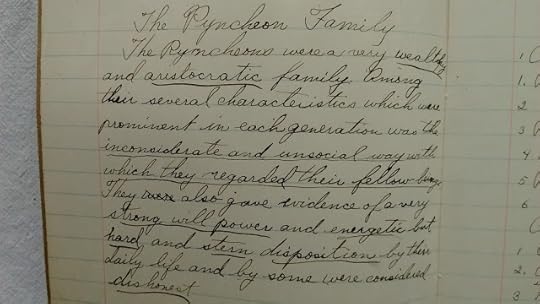 The Pyncheon Family
The Pyncheons were a very wealthy
and aristocratic family. Among
their several characteristics which were
prominent in each generation was the
inconsiderate and unsocial way with
which they regarded their fellow beings
They were also gave evidence of a very
strong will power and energetic but
hard, and stern disposition by their
daily life and by some were considered
dishonest
1.
1.
2
3
4
5
6
1.
2.
3